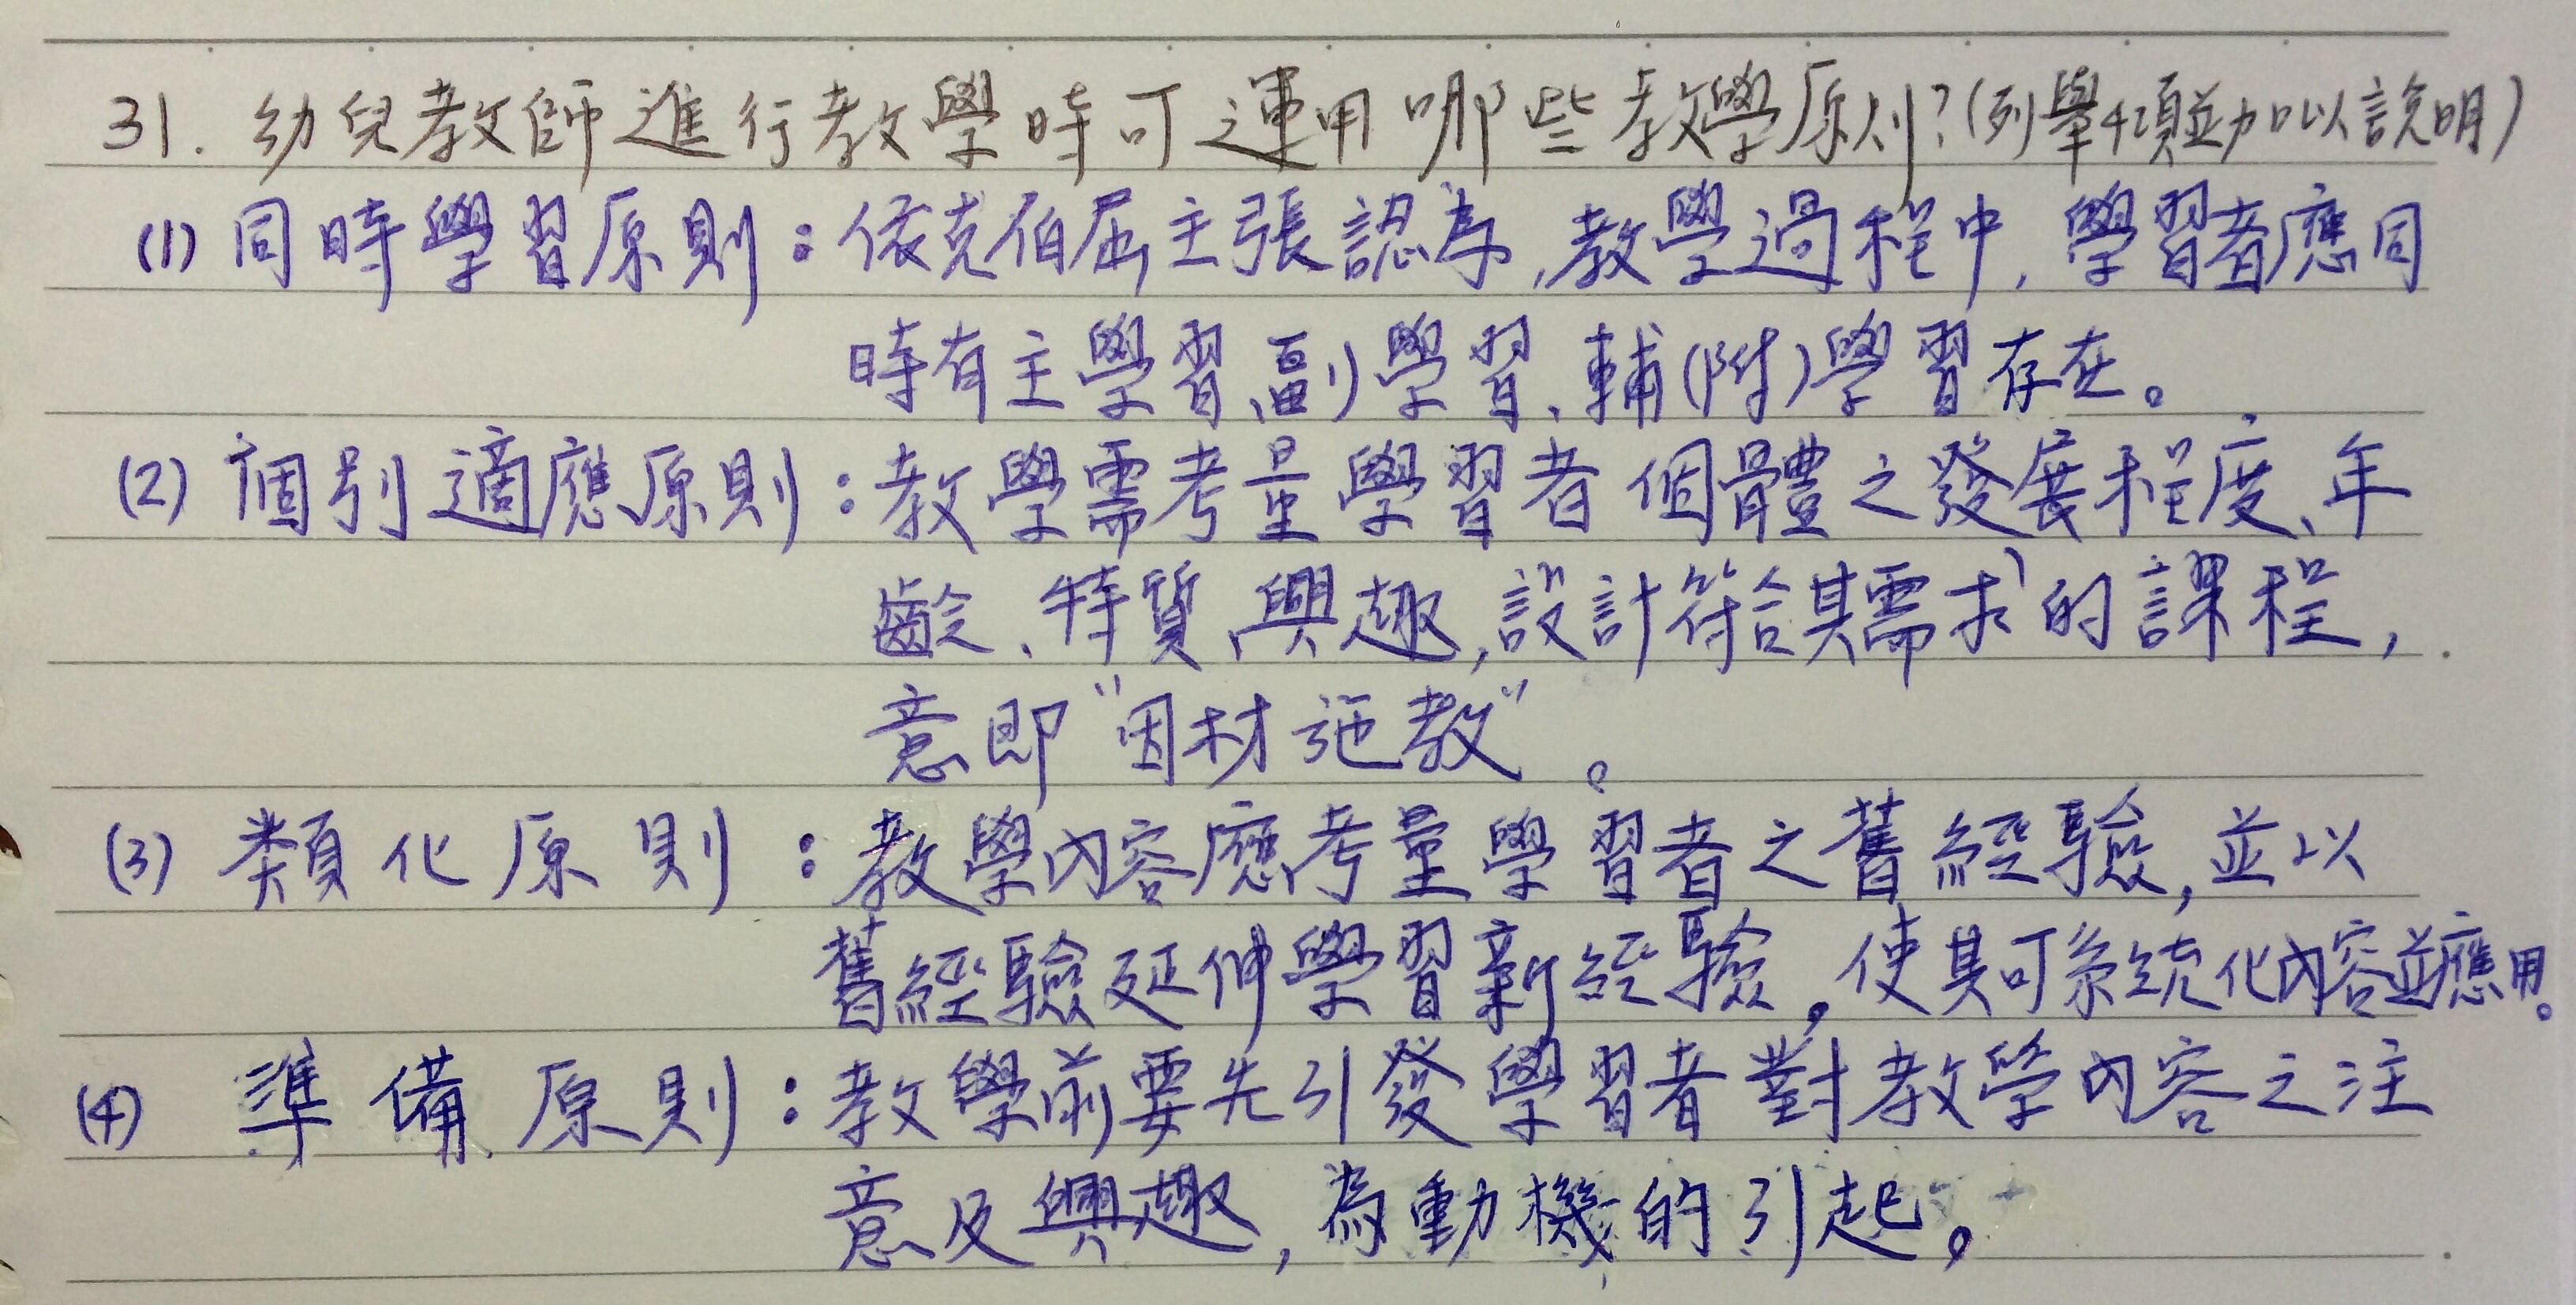 31. 幼兒教師進行教學時可運用哪些教學原則?(列舉4項並加以說明)
(1) 同時學習原則：依克伯屈主張認為,教學過程中,學習者應同
時有主學習、副學習、輔(附)學習存在。
(2) 個別適應原則：教學需考量學習者個體之發展程度、年
齡、特質、興趣,設計符合其需求的課程,
意即"因材施教"。
(3) 類化原則：教學內容應考量學習者之舊經驗,並以
舊經驗延伸學習新經驗,使其可系統化內容並應用。
(4) 準備原則：教學前要先引發學習者對教學內容之注
意及興趣,為動機的引起。